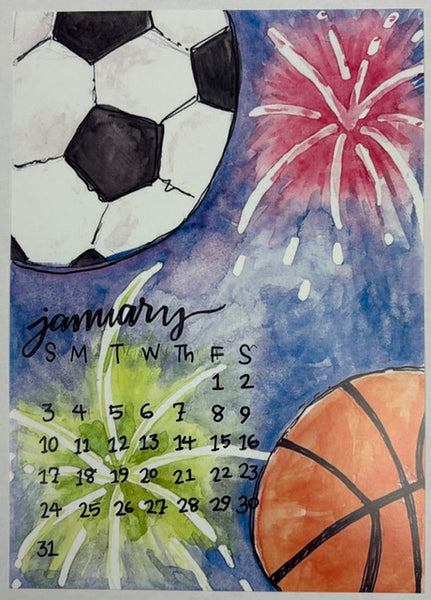 january
S M T W Th F S
1 2
3 4 5 6 7 8 9
10 11 12 13 14 15 16
17 18 19 20 21 22 23
24 25 26 27 28 29 30
31